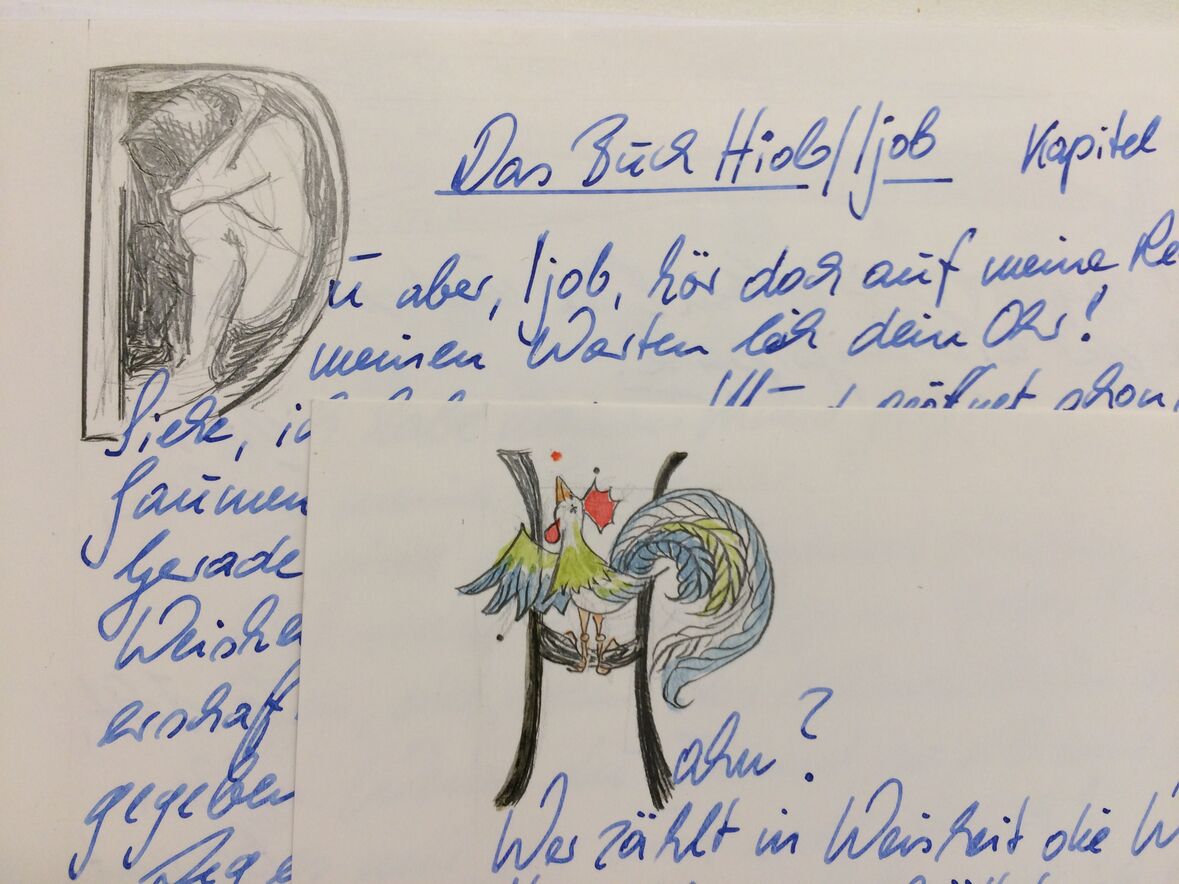 Das Buch Hiob/Ijob Kapitel
Du aber, Ijob, hör doch auf meine Re
meinen Worten leih dein Ohr!
Siehe, ic
schon,
Gaumen
Gerade
Weishe
erschaff
gegeben
Hahn?
Wer zählt in Weisheit die W